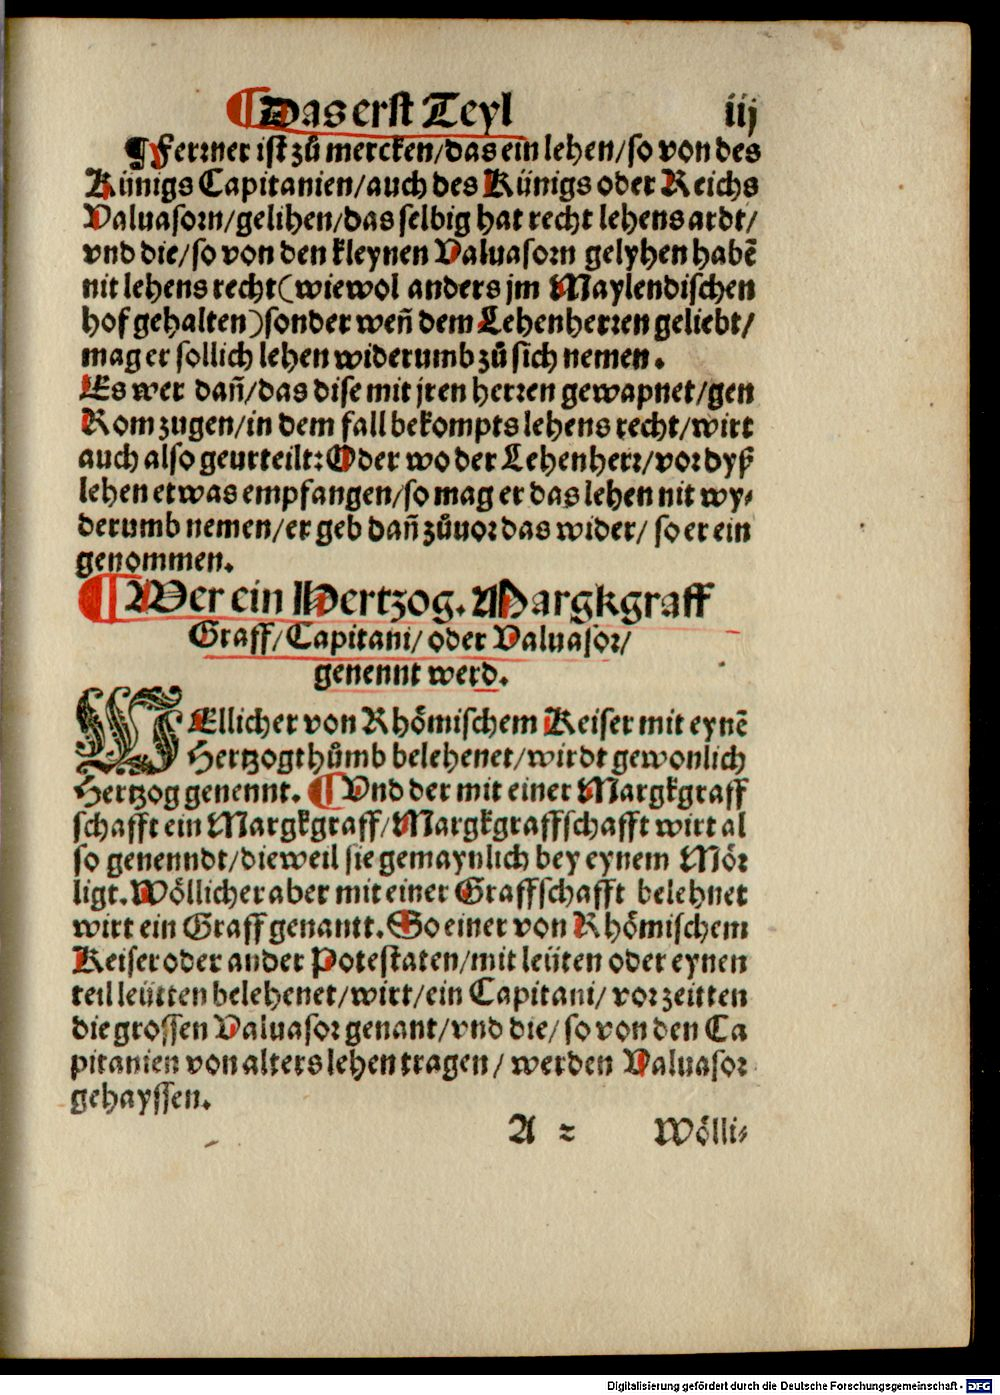 ¶Das erst Teyl iij
¶Ferꝛner ist zů mercken/das ein lehen/so von des
Künigs Capitanien/auch des Künigs oder Reichs
Valuasoꝛn/gelihen/das selbig hat recht lehens ardt/
vnd die/so von den kleynen Valuasoꝛn gelyhen habē
nit lehens recht(wiewol anders jm Maylendischen
hof gehalten)sonder weñ dem Lehenherꝛen geliebt/
mag er sollich lehen widerumb zů sich nemen.
Es wer dañ/das dise mit jren herꝛen gewapnet/gen
Rom zugen/in dem fall bekompts lehens recht/wirt
auch also geurteilt: Oder wo der Lehenherꝛ/voꝛ dyß
lehen etwas empfangen/so mag er das lehen nit wy⸗
derumb nemen/er geb dañ zůuoꝛ das wider/ so er ein
genommen.
¶Wer ein Hertzog. Margkgraff
Graff/Capitani/ oder Valuasoꝛ/
genennt werd.
WEllicher von Rhömischem Keiser mit eynē
Hertzogthůmb belehenet/wirdt gewonlich
Hertzog genennt. ¶Vnd der mit einer Margkgraff
schafft ein Margkgraff/Margkgraffschafft wirt al
so genenndt/dieweil sie gemaynlich bey eynem Möꝛ
ligt. Wöllicher aber mit einer Graffschafft belehnet
wirt ein Graff genantt. So einer von Rhömischem
Keiser oder ander Potestaten/mit leüten oder eynen
teil leütten belehenet/wirt/ein Capitani/ voꝛ zeitten
die grossen Valuasoꝛ genant/vnd die/ so von den Ca
pitanien von alters lehen tragen/ werden Valuasoꝛ
gehayssen.
A ꝛ Wölli⸗
Digitalisierung gefördert durch die Deutsche Forschungsgemeinschaft - DFG